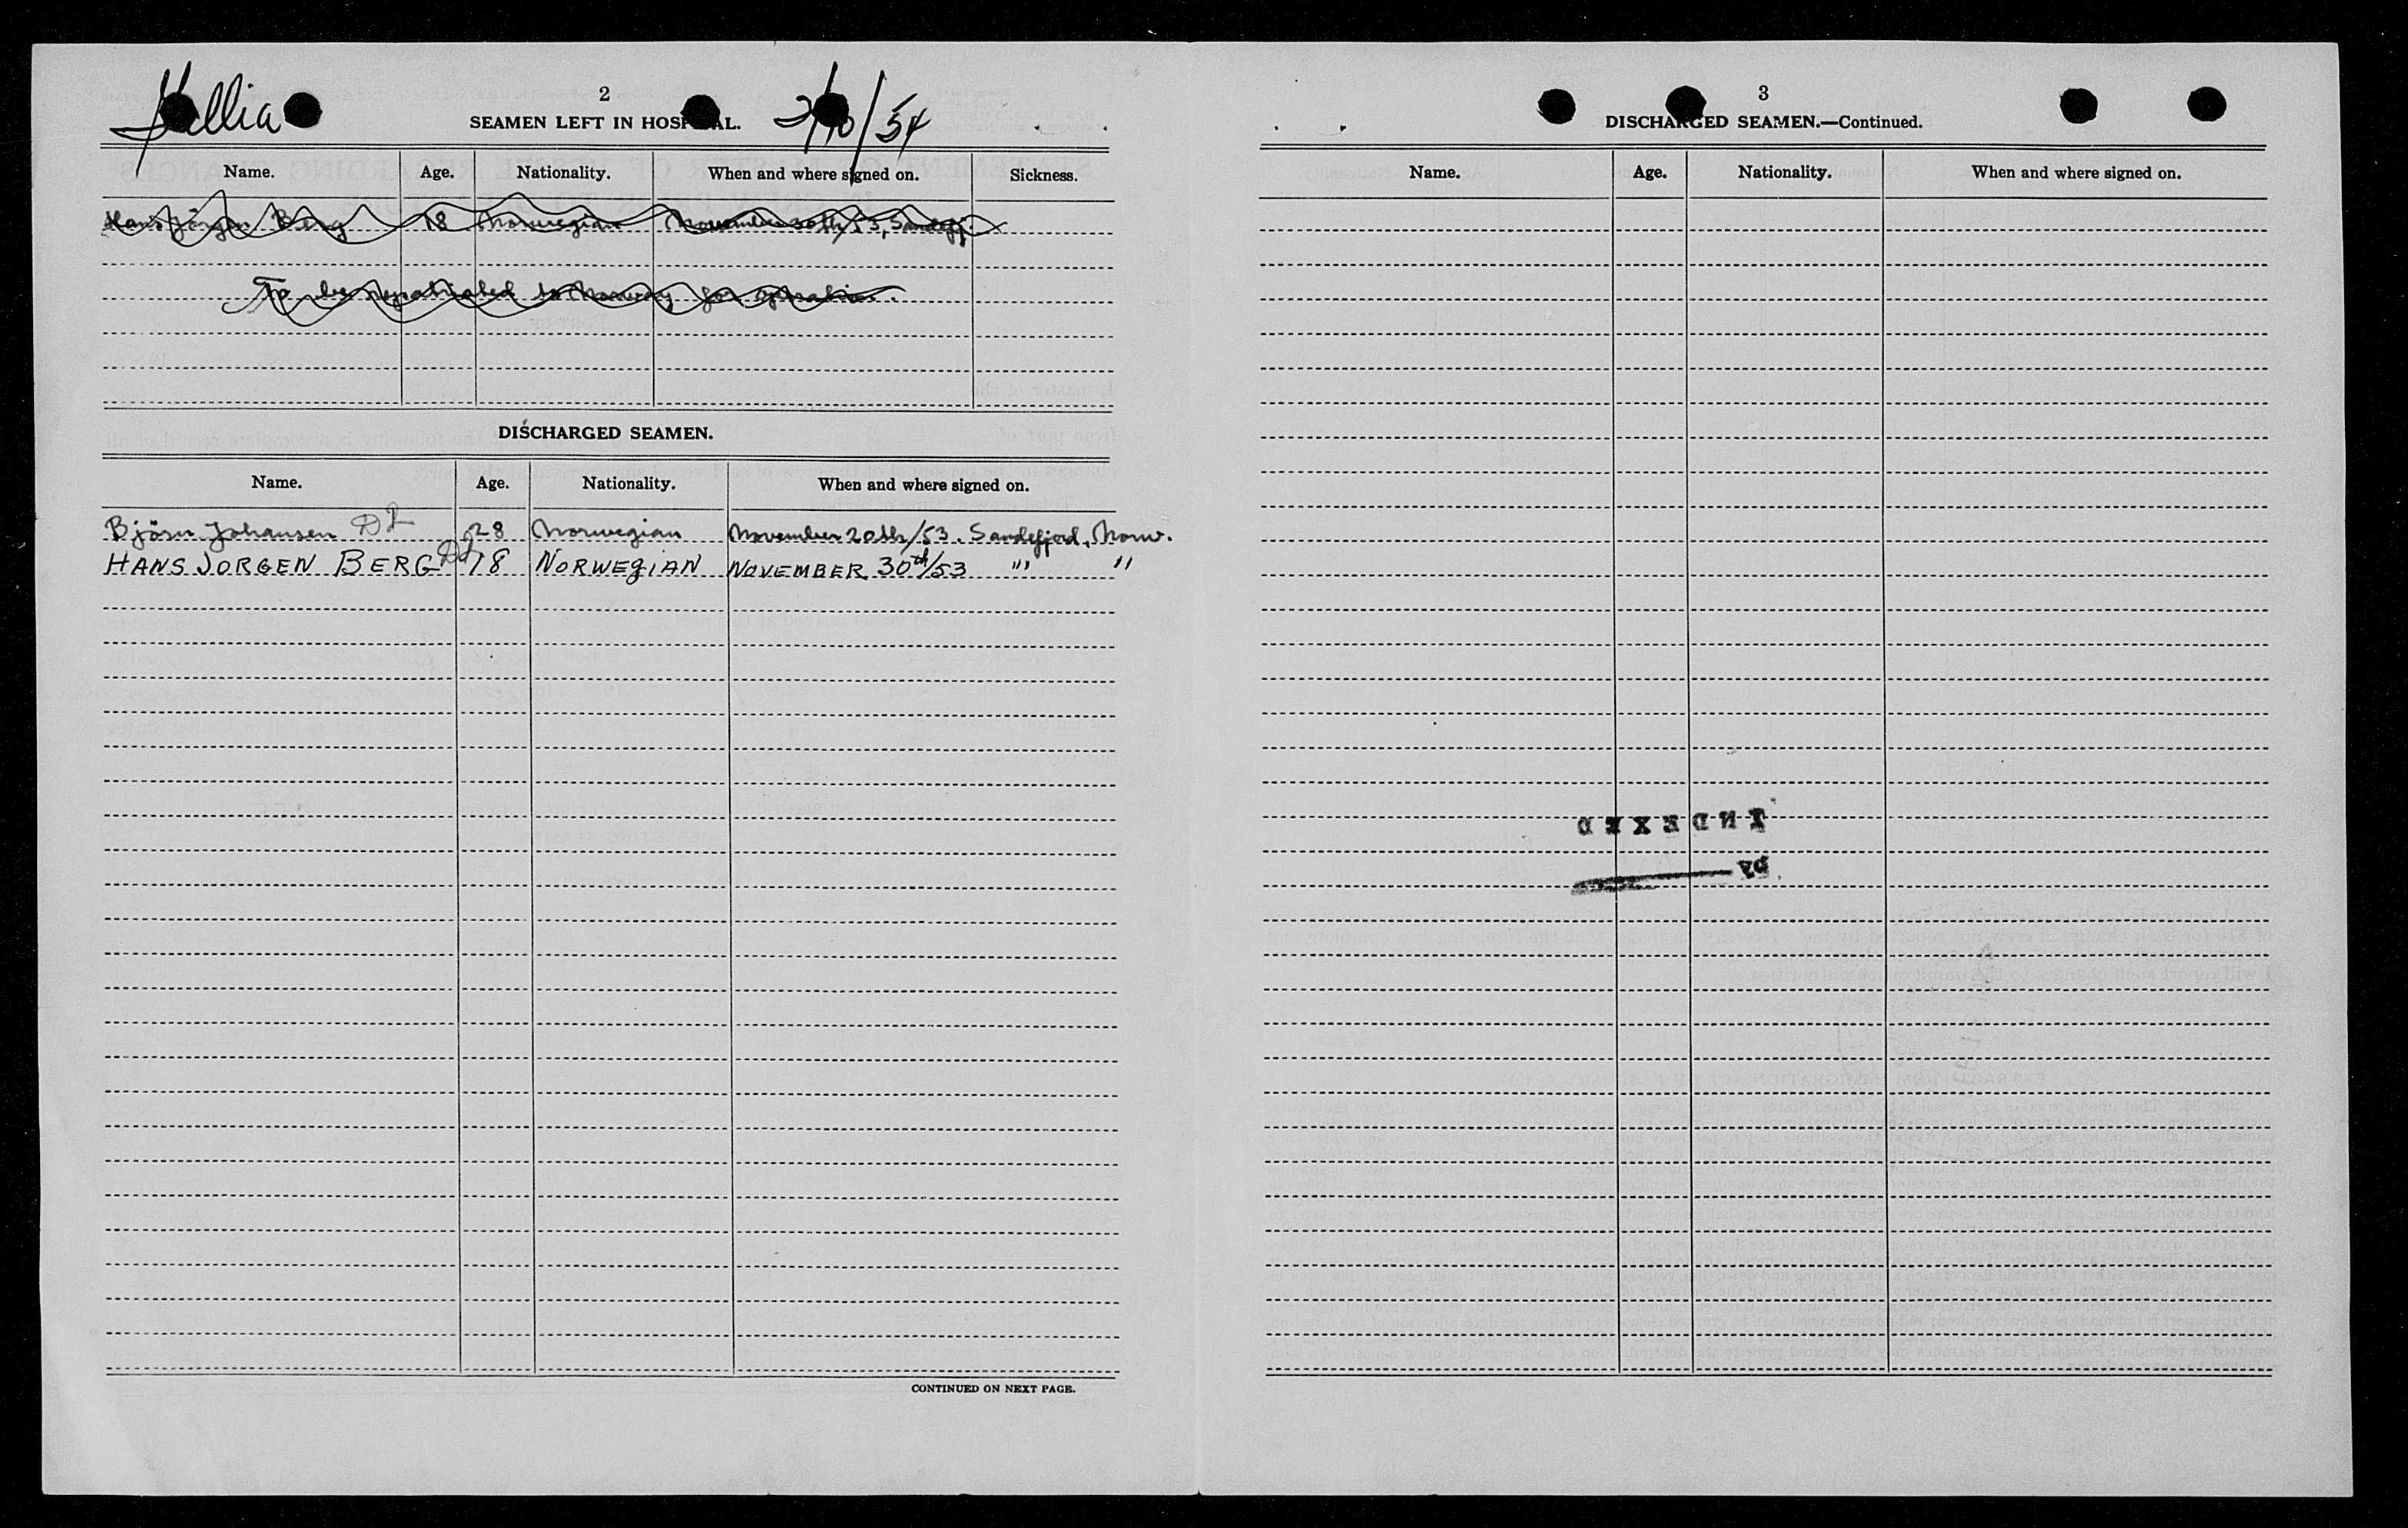 Gallia
2
SEAMEN LEFT IN HOSPITAL. 2/10/54
Name. Age. Nationality. When and where signed on. Sickness.
Hans Jörgen Berg 18 Norwegian November 30th/53, Sandefj.
To be repatriated to Norway for operation.
DISCHARGED SEAMEN.
Name. Age. Nationality. When and where signed on.
Björn Johansen DL 28 Norwegian November 20th/53. Sandefjord, Norw.
HANS JORGEN BERG DL 18 NORWEGIAN NOVEMBER 30th/53 " "
CONTINUED ON NEXT PAGE.
3
DISCHARGED SEAMEN.—Continued.
Name. Age. Nationality. When and where signed on.
INDEXED